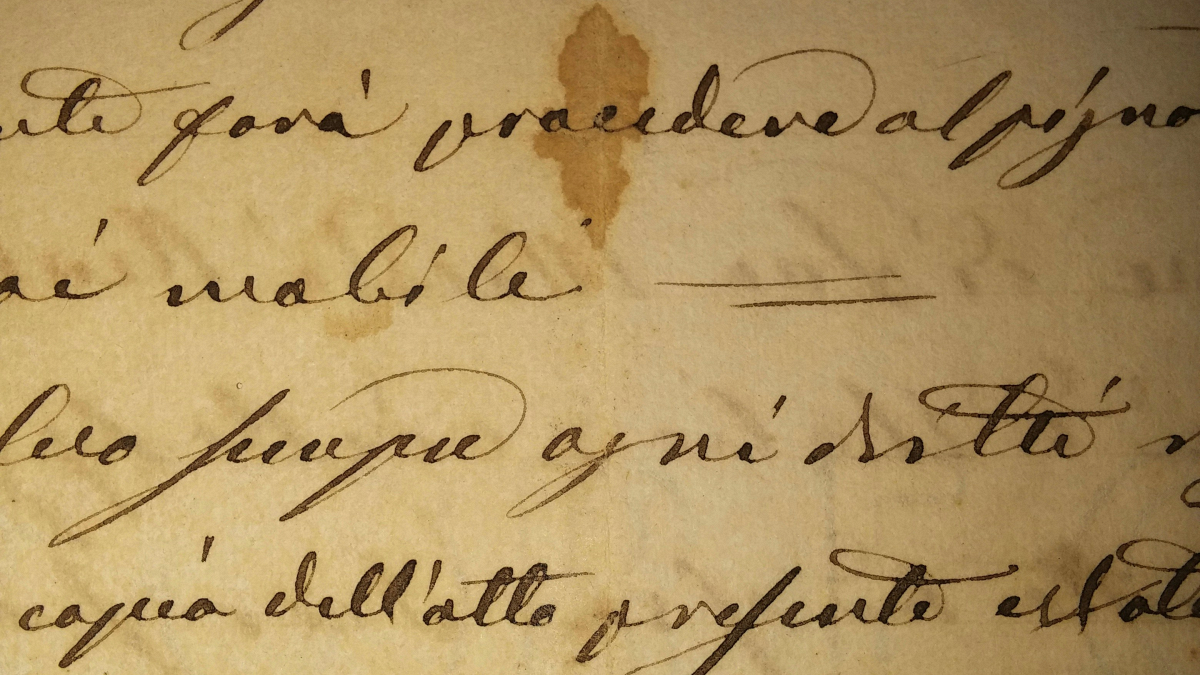 farà procedere al pigno
mobile
salvo sempre ogni dritto
copia dell'atto presente è stat